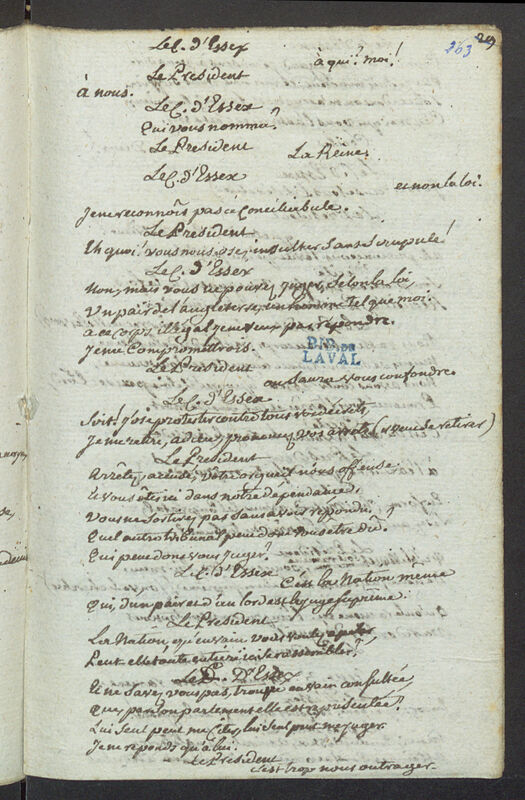 263 249
Le C. d'Essex
à qui? moi!
Le President
à nous.
Le C. d'Essex
Qui vous nomma?
Le President
La Reine.
Le C. d'Essex
et non la loi.
Je ne reconnois pas ce Conciliabule.
Le President
Eh quoi! vous nous osez insulter sans scrupule!
Le C. d'Essex
Non, mais vous ne pouvez juger, selon la loi,
Un pair de l'angleterre, un homme tel que moi.
à ce corps illégal je ne veux pas répondre.
Je me Compromettrois.
BIB. DE
LAVAL
Le President
on saura vous confondre.
Le C. d'Essex
Soit! j'ose protester contre tous vos décrets,
Je me retire, adieu, prononcez vos arrets (il veut se retirer)
Le President
Arrêtez, accusé, votre orgueil nous offense.
Et vous êtes ici dans notre dépendance,
Vous ne sortirez pas sans avoir répondu.
Quel autre tribunal peut donc vous être dû.
Qui peut donc vous juger?
Le C. d'Essex
C'est la Nation même
Qui, d'un pair et d'un lord est le juge suprême.
Le President
La Nation, qu'en vain vous voulez
Peut elle toute entière ici se rassembler?
Le C. D'Essex
Et ne savez vous pas, en vain consultée,
Que par son parlement elle est représentée?
Lui seul peut me citer, lui seul peut me juger.
Je ne réponds qu'à lui.
Le President
c'est trop nous outrager.